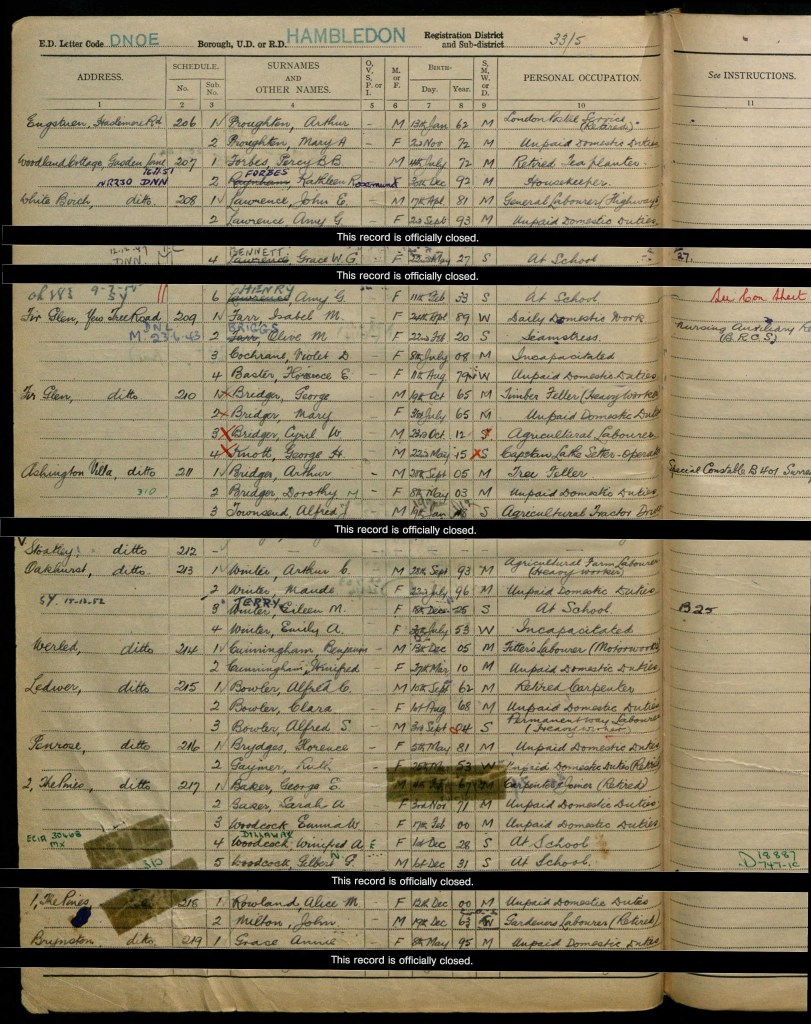 E.D. Letter Code DNOE Borough, U.D. or R.D. HAMBLEDON Registration District and Sub-district 33/5
ADDRESS. SCHEDULE. No. Sub. No. SURNAMES AND OTHER NAMES. O, V, S, P. or I M. or F. BIRTH— Day. Year. S, M, W, or D. PERSONAL OCCUPATION. See INSTRUCTIONS.
1 2 3 4 5 6 7 8 9 10 11
Haslemere Rd 206 1 Broughton, Arthur - M 13th Jan 62 M London Postal Service (Retired)
2 Broughton, Mary A - F 23 Nov 72 M Unpaid Domestic Duties
Woodland Cottage, Lane 207 1 Forbes, Percy B.B. - M July 72 M Retired Tea planter
16.11.51 FORBES
NR230 DNN 2 Kathleen Rosamund F 30th Dec 92 M Housekeeper.
White Birch, ditto. 208 1 Lawrence, John E. - M 17th Apl 81 M General Labourer (Highways
2 Lawrence, Amy G. - F 23 Sept 93 M Unpaid Domestic Duties
This record is officially closed.
12.12.47 BENNETT
DNN 4 Lawrence, Grace W.G. F May 27 S At School 27.
This record is officially closed.
HENRY
6 Lawrence, Amy G. F 11th Feb 33 S At School See Con Sheet
Fir Glen, Yew Tree Road 209 1 Farr, Isabel M. - F 24th Apl 89 W Daily Domestic Work Nursing Auxiliary
DNL BRIGGS (B.R.C.S)
M. 23.6.43 2 Farr, Olive M - F 22nd Feb 20 S Seamstress.
3 Cochrane, Violet D - F 8th July 08 M Incapacitated
4 Baxter, Florence E. - F 11th Aug 79 W Unpaid Domestic Duties
Fir Glen, ditto 210 1 Bridger, George - M 19th Oct 65 M Timber Feller (Heavy Worker
2 Bridger, Mary July 65 M Unpaid Domestic Duti
3 Bridger, Cyril W. - M 23rd Oct 12 S Agricultural Labourer
4 Knott, George H. M 22nd May 15 S Capstan Lathe Setter-Operat
Ashington Villa, ditto 211 1 Bridger, Arthur - M 20th Sept 05 M Tree Feller Special Constable B 401 Surrey
310 2 Bridger, Dorothy M - F 5th May 03 M Unpaid Domestic Duties
3 Townsend, Alfred J M 9th Jan 18 S Agricultural Tractor
This record is officially closed.
ditto 212 -
Oakhurst, ditto 213 1 Winter, Arthur C. - M 28th Sept 93 M Agricultural Farm Labourer (Heavy worker)
2 Winter, Maude - F 23rd July 96 M Unpaid Domestic Duties
SY. 15.12.52 TERRY
3 Winter, Eileen M. - F 18th Dec 25 S At School B25
4 Winter, Emily A. F July 53 W Incapacitated
Werled, ditto 214 1 Cunningham, Benjamin - M 13th Dec 05 M Fitters Labourer (Motorworks)
2 Cunningham, Winifred - F Mar 10 M Unpaid Domestic Duties
Ledwer, ditto 215 1 Bowler, Alfred C. - M 10th Sept 62 M Retired Carpenter
2 Bowler, Clara - F 1st Aug 68 M Unpaid Domestic Duties
3 Bowler, Alfred S. M 3rd Sept 04 S Permanent Way Labourer (Heavy Worker)
Penrose, ditto 216 1 Brydges, Florence - F 5th May 81 M Unpaid Domestic Duties
2 Gaymer, Ruth - F 53 W Unpaid Domestic Duties (Retired)
2, The Pines, ditto 217 1 Baker, George E. M 67 M Carpenter & Joiner (Retired)
2 Baker, Sarah A F 3rd Nov 71 M Unpaid Domestic Duties
3 Woodcock, Emma W F 17th Feb 00 M Unpaid Domestic Duties
ECIR 30468 DILLAWAY
MX 4 Woodcock, Winifred A E F 1st Dec 28 S At School
310 5 Woodcock, Gilbert G M 6th Dec 31 S At School. D 18887
747-1C
This record is officially closed.
1, The Pines ditto 218 1 Rowland, Alice M. - F 12th Dec 00 M Unpaid Domestic Duties
2 Milton, John - M 17th Dec 63 W Gardeners Labourer (Retired)
Brynston, ditto 219 1 Grace Annie F 8th May 95 M Unpaid Domestic Duties
This record is officially closed.